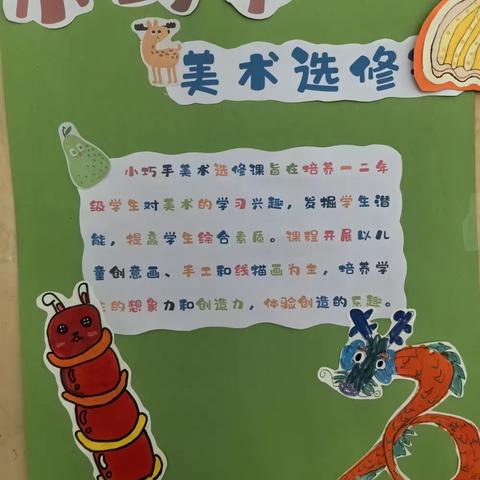 美术选修
小巧手美术选修课旨在培养一二年
级学生对美术的学习兴趣，发掘学生潜
能，提高学生综合素质。课程开展以儿
童创意画、手工和线描画为主，培养学
生的想象力和创造力，体验创造的乐趣。